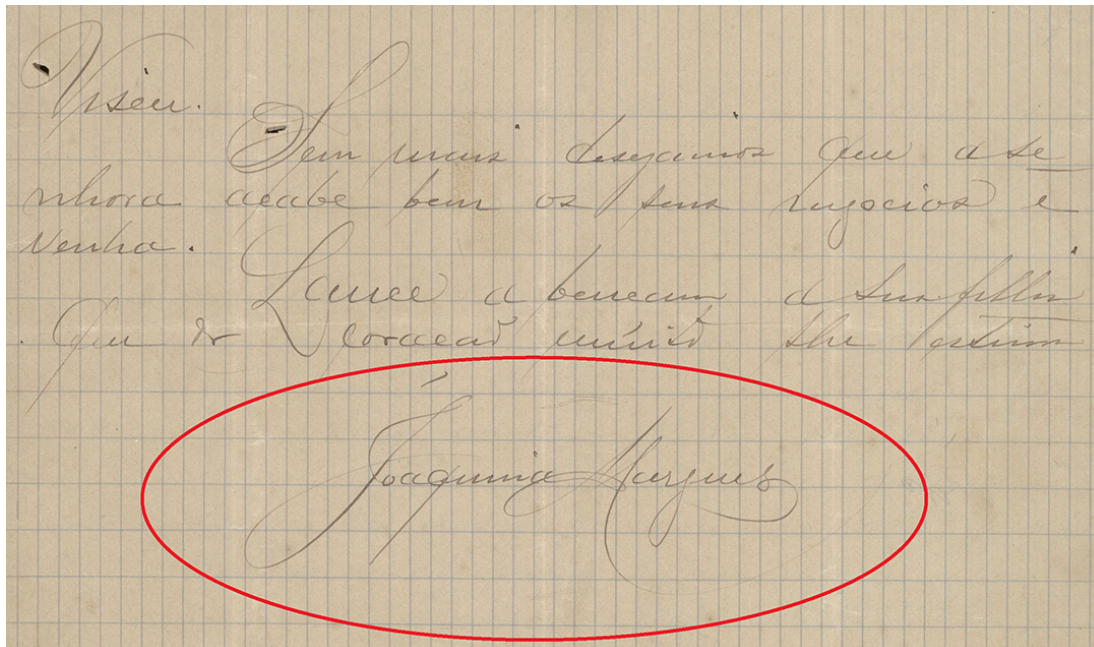 Viseu.
Sem mais desejamos que a se
nhora acabe bem os seus negocios e
venha.
Lance a bencam a sua filha
que de coracaõ muito lhe estima
Joaquina Marques